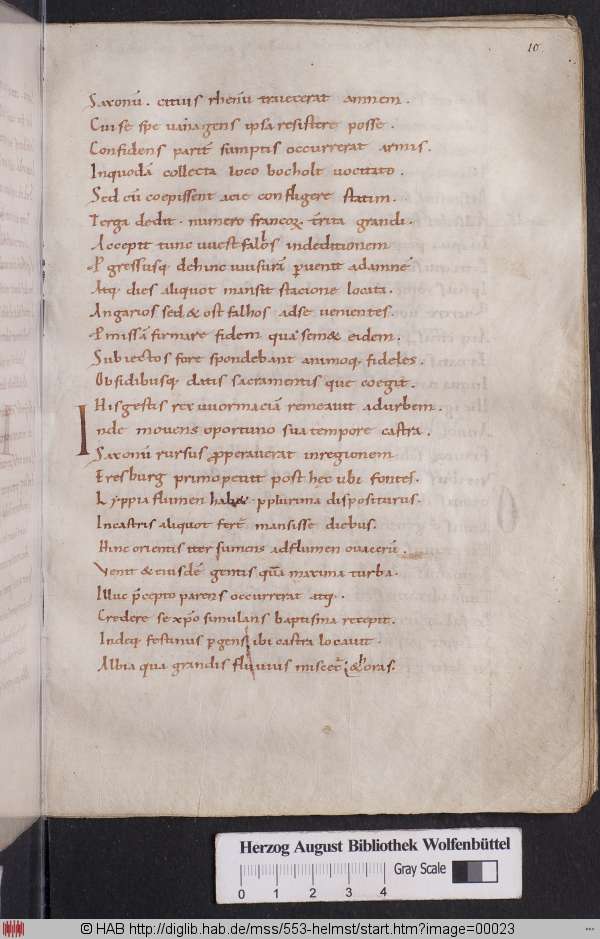 10
Saxonū. citius rhenū traiecerat amnem.
Cui se spe uana gens ipsa resistere posse.
Confidens partī sumptis occurrerat armis.
Inquodā collecta loco bocholt uocitato.
Sed cū coepissent acie confligere statim.
Terga dedit. numero francoꝝ. territa grandi.
Accepit tunc uuestfalos indeditionem
Pgressusq; dehinc uuisurā ꝑuenit adamnē
Atq; dies aliquot mansit stacione locata.
Angarios sed & ostfalhos adse uenientes.
Pmissā firmare fidem quā sem& eidem.
Subiectos fore spondebant animoq; fideles.
Obsidibusq; datis sacramentis que coegit.
His gestis rex uuormaciā remeauit adurbem.
Inde mouens oportuno sua tempore castra.
Saxonū rursus ꝓperauerat inregionem
Eresburg primo petiit post hec ubi fontes.
Lyppia flumen hab& ꝑplurima dispositurus.
Incastris aliquot fert̄ mansisse diebus.
Hinc orientis iter sumens adflumen ouacerū.
Venit & eiusdē gentis quā maxima turba.
Illuc p̄cepto parens occurrerat atq;.
Credere se xp̄o simulans baptisma recepit.
Indeq; festinus ꝑgens ibi castra locauit.
Albia qua grandis fluuius miscet &horas.
Herzog August Bibliothek Wolfenbüttel
0 1 2 3 4
Gray Scale
© HAB http://diglib.hab.de/mss/553-helmst/start.htm?image=00023